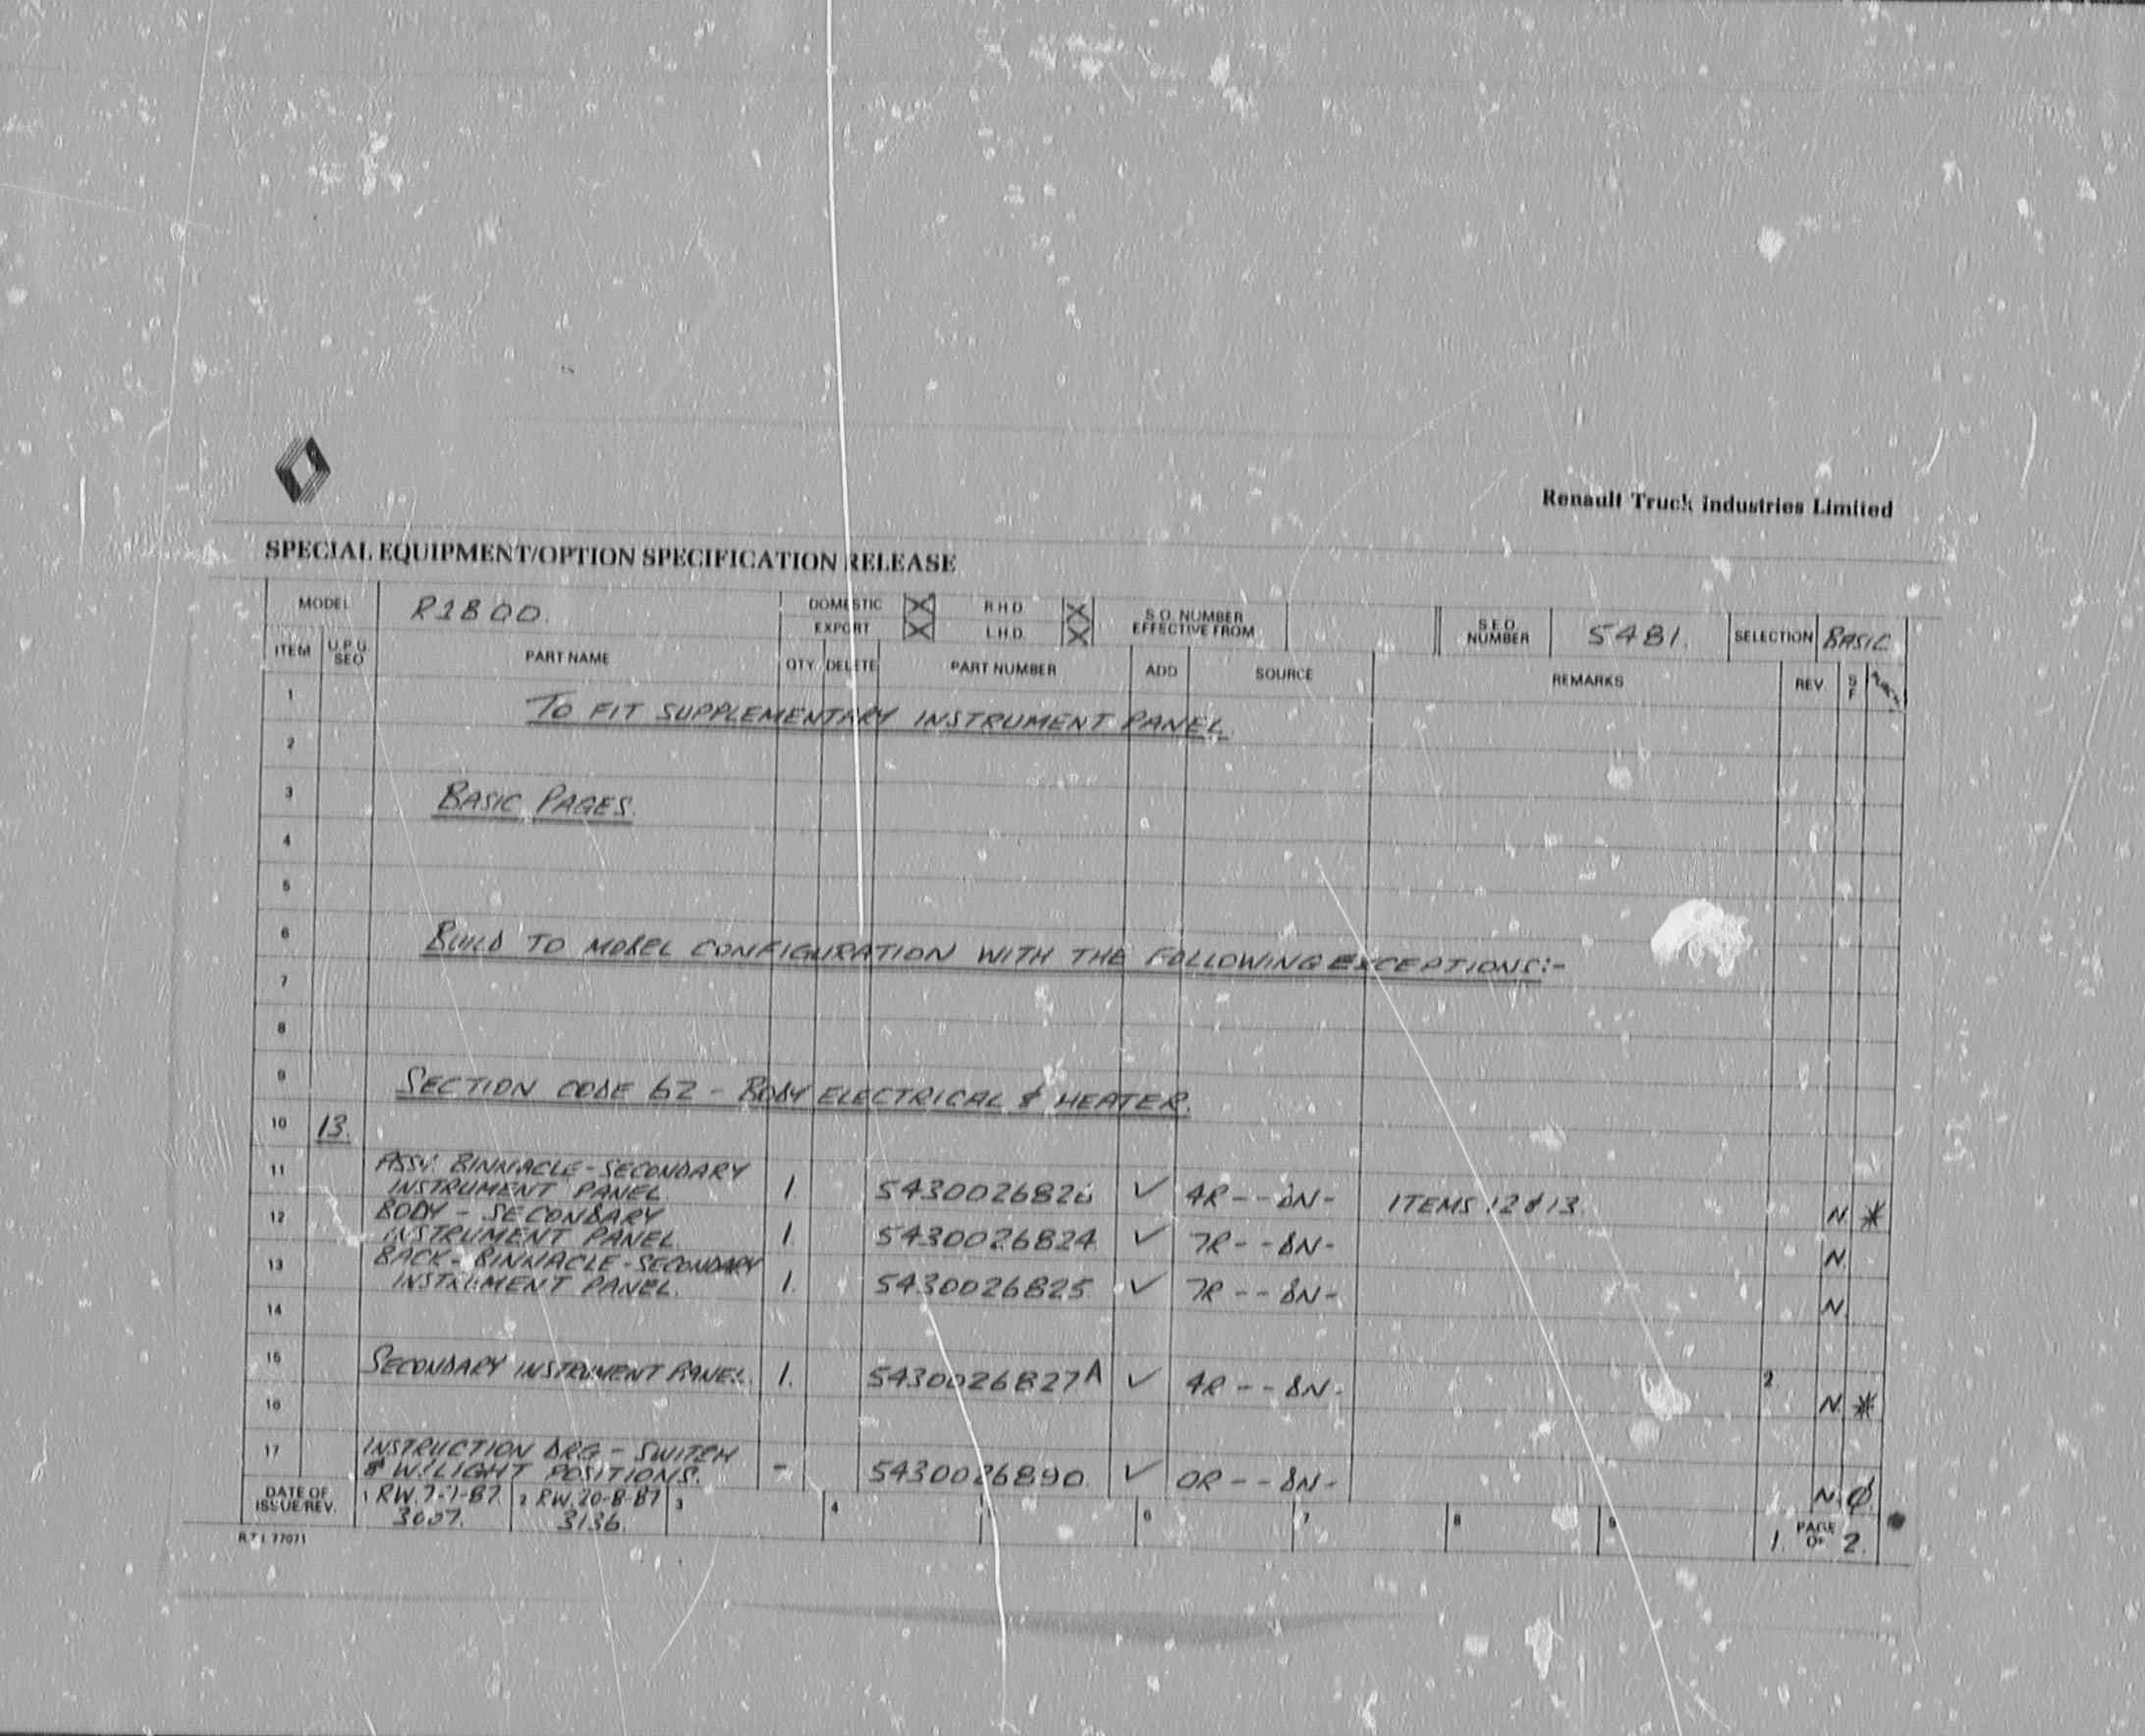 Renault Truck Industries Limited
SPECIAL EQUIPMENT/OPTION SPECIFICATION RELEASE
MODEL R1800. DOMESTIC X R.H.D. X S.O. NUMBER EFFECTIVE FROM S.E.O. NUMBER 5481. SELECTION BASIC
EXPORT X L.H.D. X
ITEM U.P.G. SEQ PART NAME QTY. DELETE PART NUMBER ADD SOURCE REMARKS REV S F
1 TO FIT SUPPLEMENTARY INSTRUMENT PANEL.
2
3 BASIC PAGES.
4
5
6 BUILD TO MODEL CONFIGURATION WITH THE FOLLOWING EXCEPTIONS:-
7
8
9 SECTION CODE 62 - BODY ELECTRICAL & HEATER.
10 13.
11 ASSY. BINNACLE - SECONDARY
INSTRUMENT PANEL 1 5430026826 ✓ 4R - - DN - ITEMS 12 & 13. N *
12 BODY - SECONDARY
INSTRUMENT PANEL 1 5430026824 ✓ 7R - - DN - N
13 BACK - BINNACLE - SECONDARY
INSTRUMENT PANEL. 1. 5430026825 ✓ 7R - - DN - N
14
15 SECONDARY INSTRUMENT PANEL. 1. 5430026827A ✓ 4R - - DN - 2 N *
16
17 INSTRUCTION DRG - SWITCH
& W/LIGHT POSITIONS. - 5430026890. ✓ 0R - - DN - N Ø
DATE OF ISSUE/REV. 1 RW. 7-7-87. 2 RW. 20-8-87 3 4 6 7 8 9 1. PAGE OF 2.
3007. 3136.
R.T.I. 77071